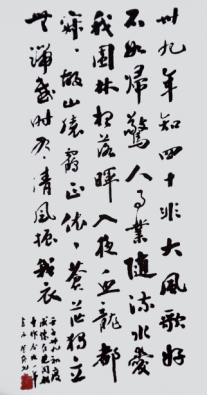 卅九年知四十非大風歌好
不如歸驚人事業隨流水愛
我園林想落暉入夜魚龍都
寂々故山猿鶴正依々蒼茫獨立
無端感時有清風振我衣